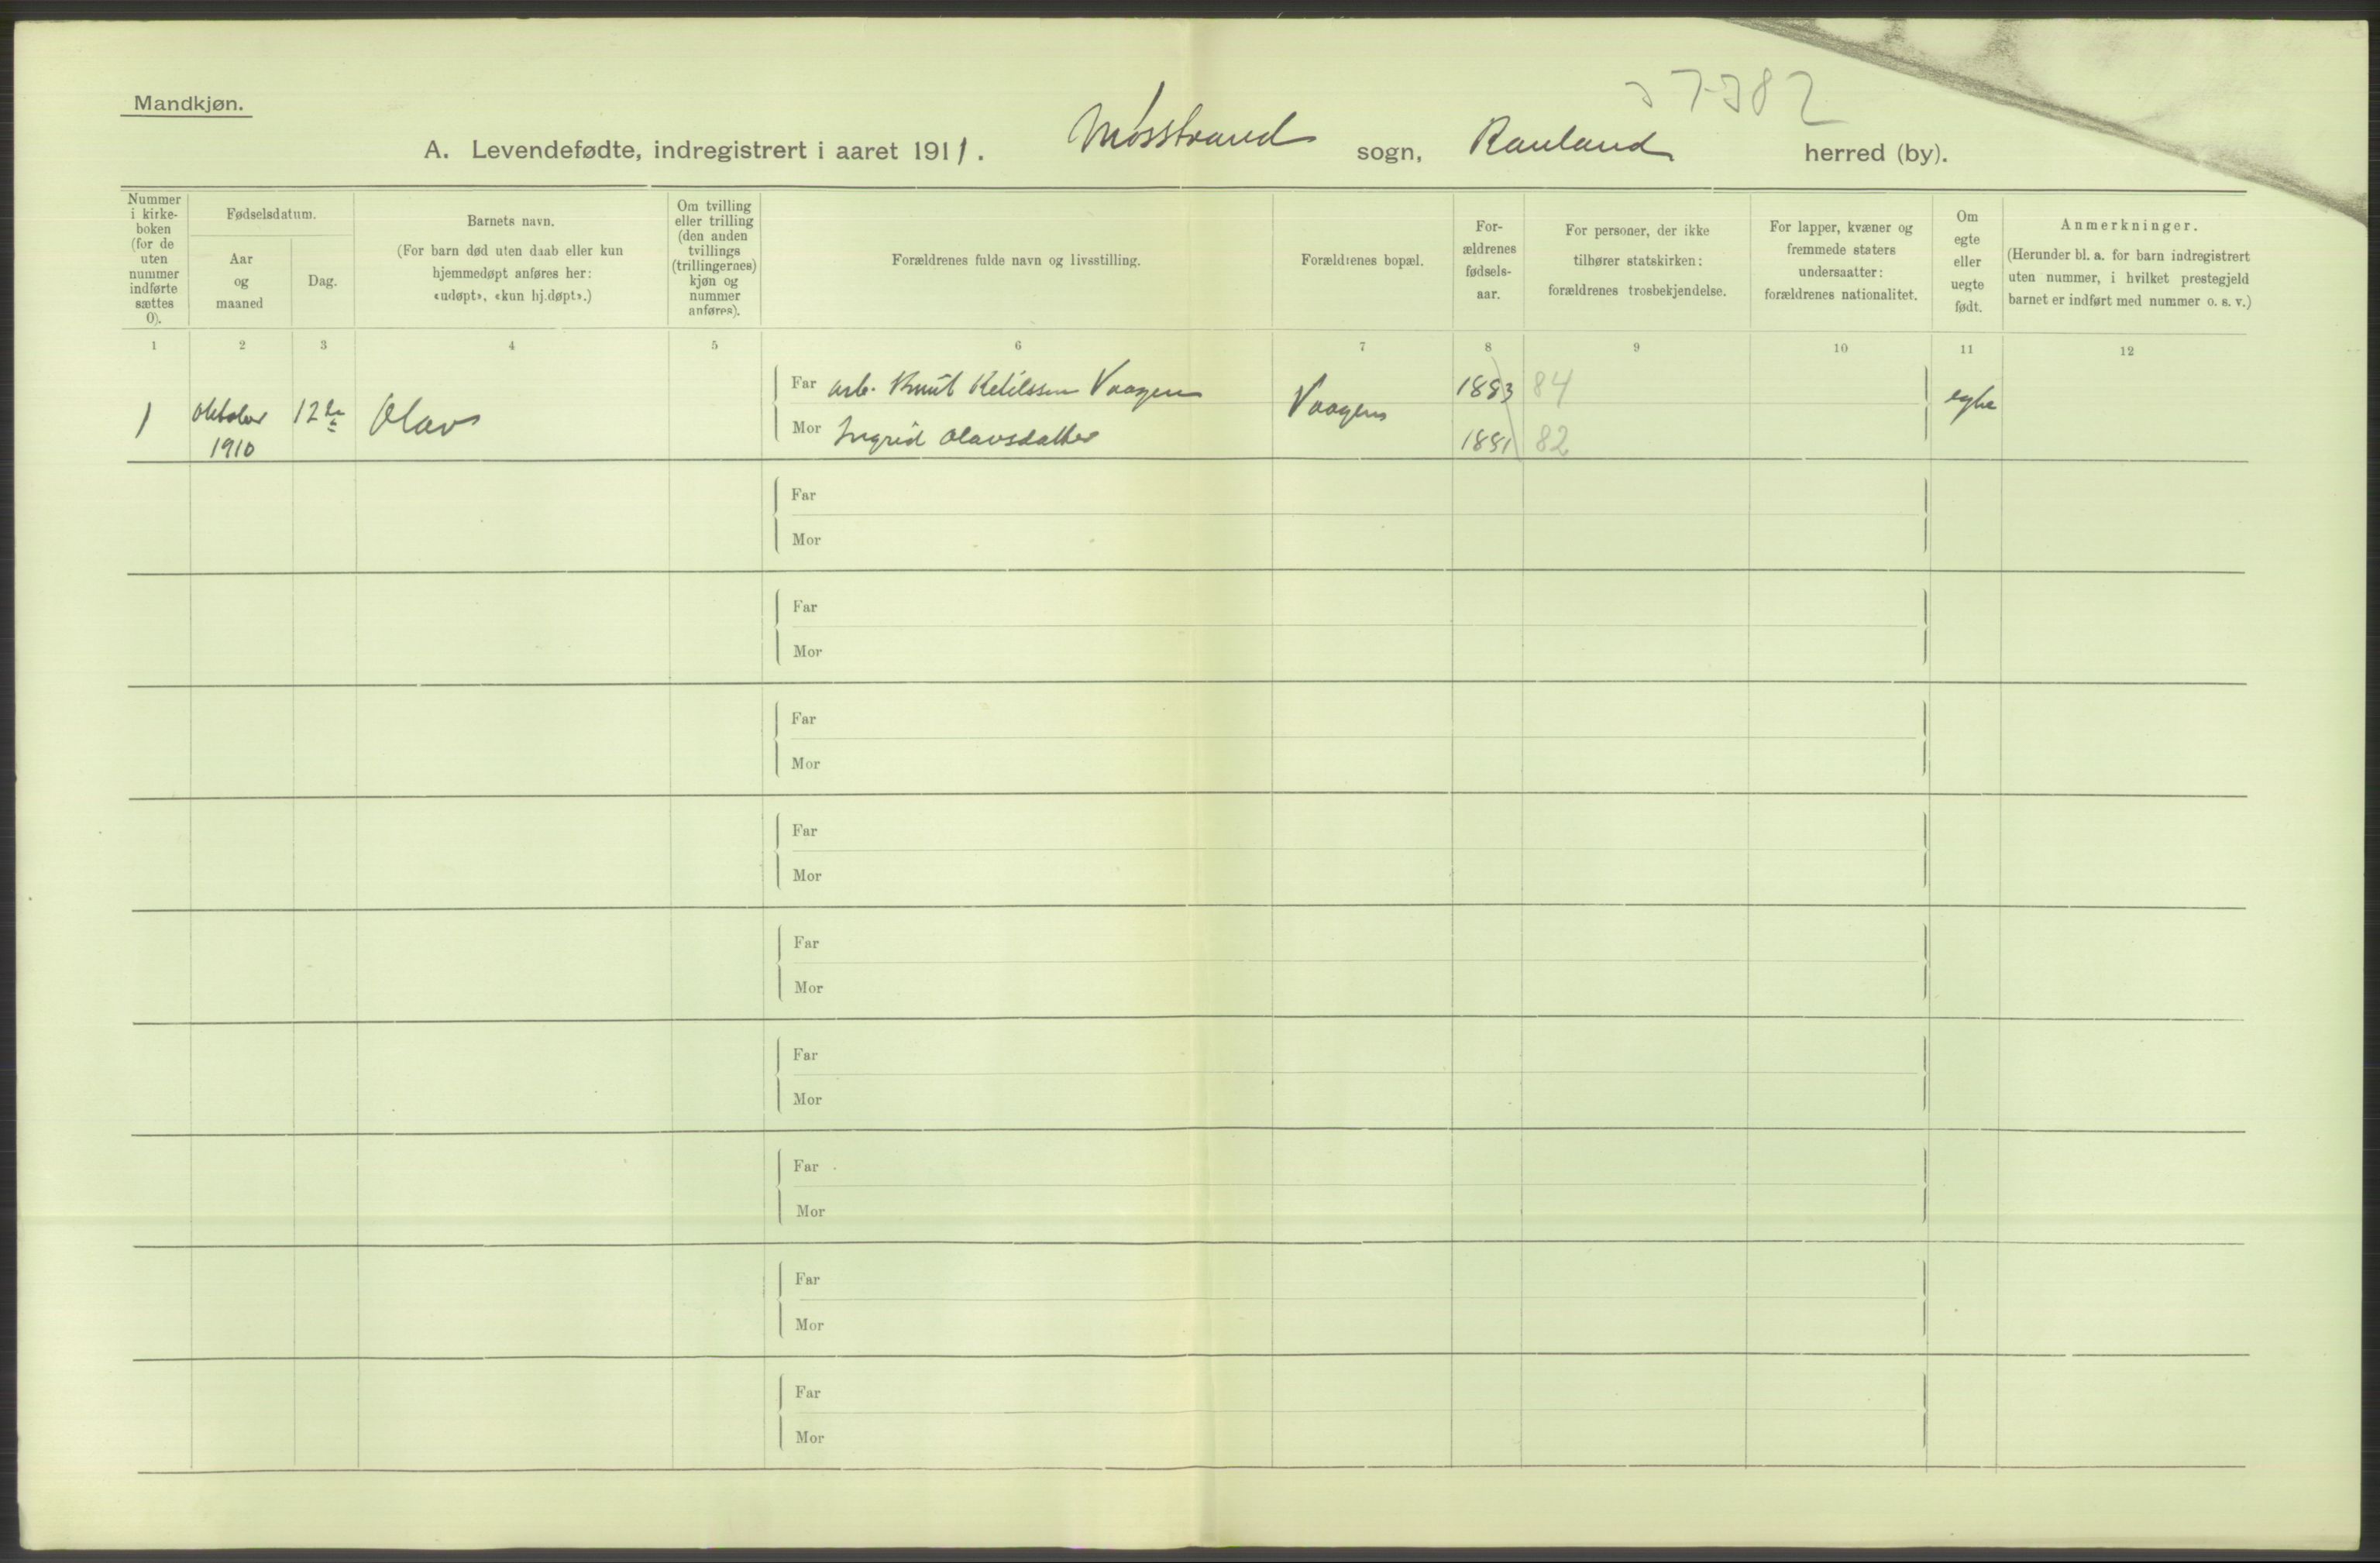 Mandkjøn.
A. Levendefødte, indregistrert i aaret 1911. Mosstrand sogn, Rauland herred (by).
Nummer
i kirke-
boken
(for de
uten
nummer
indførte
sættes
0).
Fødselsdatum.
Aar
og
maaned
Dag.
Barnets navn.
(For barn død uten daab eller kun
hjemmedøpt anføres her:
«udøpt», «kun hj.døpt».)
Om tvilling
eller trilling
(den anden
tvillings
(trillingernes)
kjøn og
nummer
anføres).
Forældrenes fulde navn og livsstilling.
Forældrenes bopæl.
For-
ældrenes
fødsels-
aar.
For personer, der ikke
tilhører statskirken:
forældrenes trosbekjendelse.
For lapper, kvæner og
fremmede staters
undersaatter:
forældrenes nationalitet.
Om
egte
eller
uegte
født.
Anmerkninger.
(Herunder bl. a. for barn indregistrert
uten nummer, i hvilket prestegjeld
barnet er indført med nummer o. s. v.)
1 2 3 4 5 6 7 8 9 10 11 12
1 Oktober 1910 12te Olav
Far arb. Knut Ketilssen Vaagen Vaagen 1883 84 egte
Mor Ingrid Olavsdatter 1881 82
Far
Mor
Far
Mor
Far
Mor
Far
Mor
Far
Mor
Far
Mor
Far
Mor
Far
Mor
Far
Mor